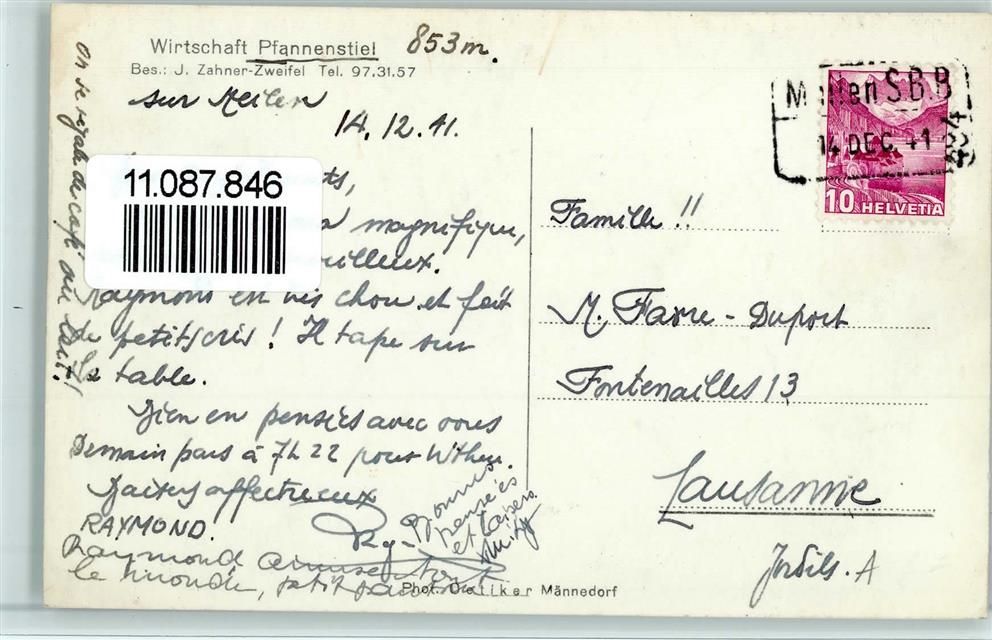 Wirtschaft Pfannenstiel 853m.
Bes.: J. Zahner-Zweifel Tel. 97.31.57
sur Meilen
14.12.41.
11.087.846
magnifique,
Raymond est très chou et fait
de petits cris ! Il tape sur
la table.
Bien en pensées avec vous
Demain pars à 7h22 pour
Baisers affectueux
RAYMOND.
Bonnes
pensées
et baisers.
Raymond amuse tout
le monde, petit
Phot. Oetiker Männedorf
on se régale de café au lait!
Meilen SBB
14 DEC. 41
10 HELVETIA
Famille !!
M. Favre - Duport
Fontenailles 13
Lausanne
Jordils. A